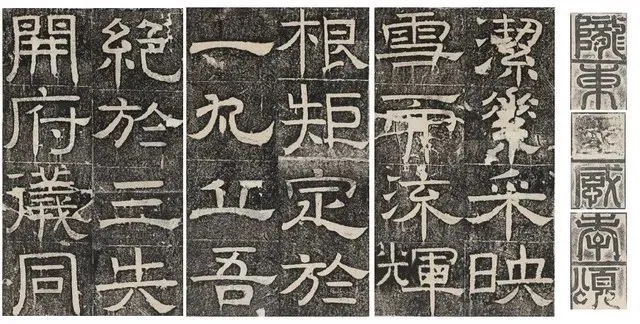 隴東王感孝頌
潔采映
雪而流輝
根矩定於
一九丘吾
絕於三失
開府儀同